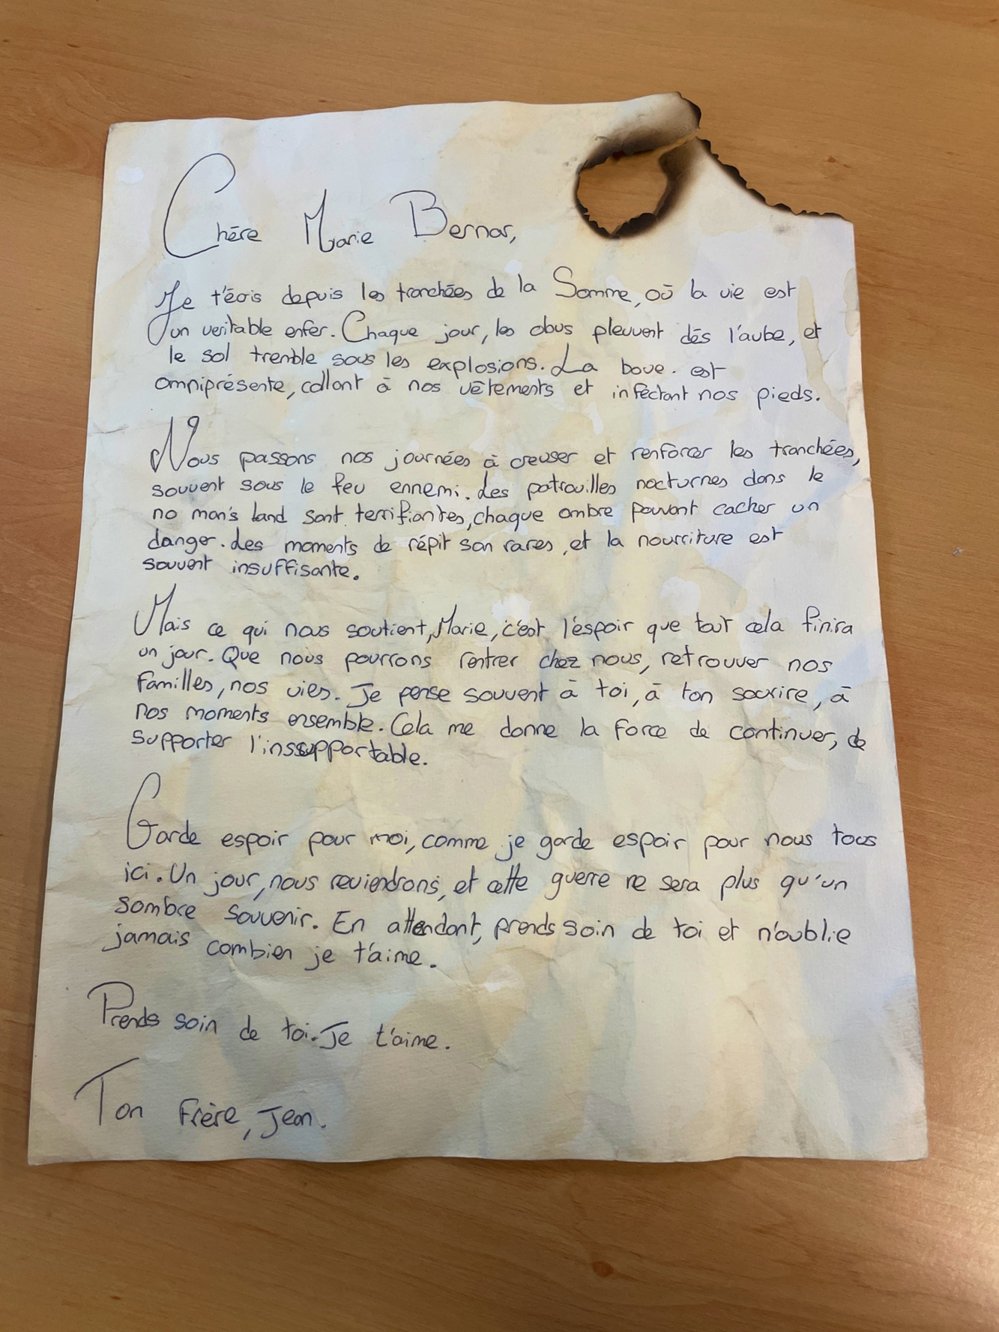 Chère Marie Bernar,
Je t'écris depuis les tranchées de la Somme, où la vie est
un veritable enfer. Chaque jour, les obus pleuvent dès l'aube, et
le sol tremble sous les explosions. La boue. est
omniprésente, collant à nos vêtements et infectant nos pieds.
Nous passons nos journées à creuser et renforcer les tranchées,
souvent sous le feu ennemi. Les patrouilles nocturnes dans le
no man's land sont terrifiantes, chaque ombre pouvant cacher un
danger. Les moments de répit son rares, et la nourriture est
souvent insuffisante.
Mais ce qui nous soutient, Marie, c'est l'espoir que tout cela finira
un jour. Que nous pourrons rentrer chez nous, retrouver nos
familles, nos vies. Je pense souvent à toi, à ton sourire, à
nos moments ensemble. Cela me donne la force de continuer, de
supporter l'inssupportable.
Garde espoir pour moi, comme je garde espoir pour nous tous
ici. Un jour, nous reviendrons, et cette guerre ne sera plus qu'un
sombre souvenir. En attendant, prends soin de toi et n'oublie
jamais combien je t'aime.
Prends soin de toi. Je t'aime.
Ton Frère, Jean.